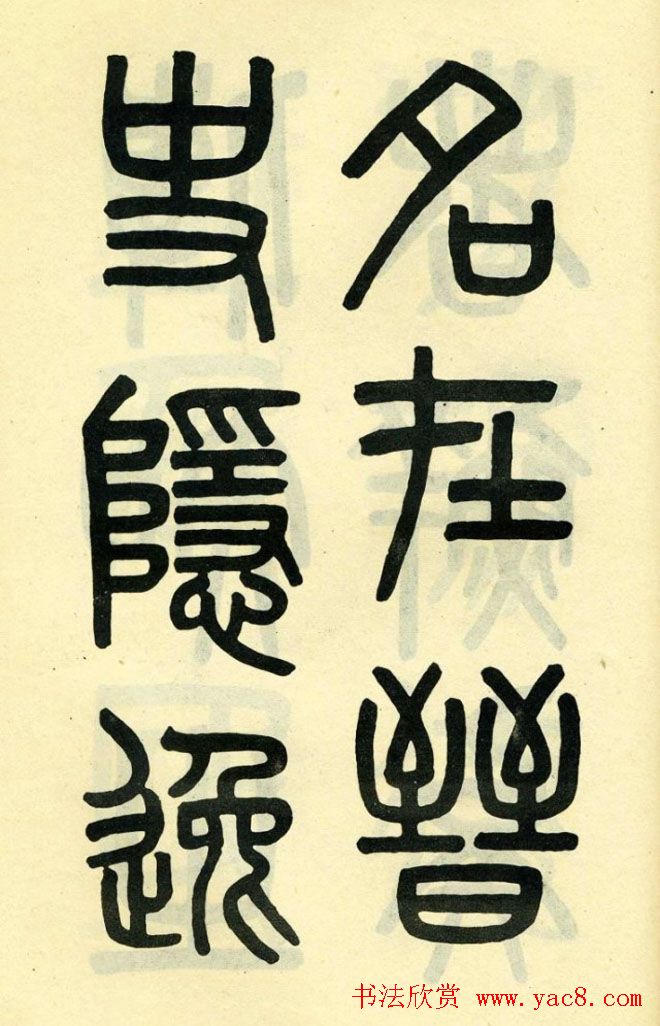 名在晉
史隱逸
书法欣赏 www.yac8.com